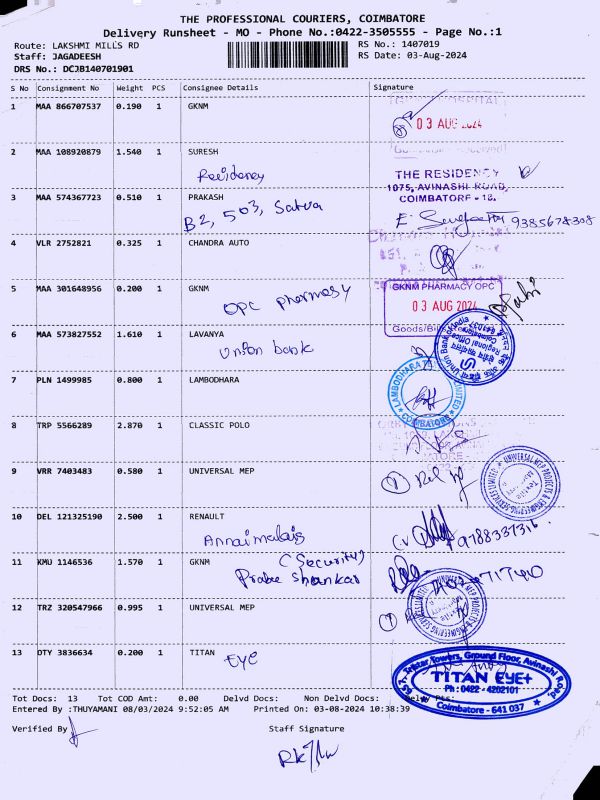 THE PROFESSIONAL COURIERS, COIMBATORE
Delivery Runsheet - MO - Phone No.:0422-3505555 - Page No.:1
Route: LAKSHMI MILLS RD
RS No.: 1407019
Staff: JAGADEESH
RS Date: 03-Aug-2024
DRS No.: DCJB140701901
S No Consignment No Weight PCS Consignee Details Signature
1 MAA 866707537 0.190 1 GKNM
03 AUG 2024
2 MAA 108920879 1.540 1 SURESH
Residency
THE RESIDENCY
1075, AVINASHI ROAD,
COIMBATORE - 18.
3 MAA 574367723 0.510 1 PRAKASH
B2, 503, Satva
9385678308
4 VLR 2752821 0.325 1 CHANDRA AUTO
5 MAA 301648956 0.200 1 GKNM
OPC pharmasy
GKNM PHARMACY OPC
03 AUG 2024
6 MAA 573827552 1.610 1 LAVANYA
Union bank
Union Bank of India
Regional Office
7 PLN 1499985 0.800 1 LAMBODHARA
COIMBATORE
8 TRP 5566289 2.870 1 CLASSIC POLO
9 VRR 7403483 0.580 1 UNIVERSAL MEP
UNIVERSAL MEP PROJECTS & ENGINEERING SERVICES LIMITED
10 DEL 121325190 2.500 1 RENAULT
Annaimalais
11 KMU 1146536 1.570 1 GKNM
(Security)
Prabe Shankar
12 TRZ 320547966 0.995 1 UNIVERSAL MEP
13 DTY 3836634 0.200 1 TITAN
EYE
657, Tristar Towers, Ground Floor, Avinashi Road,
TITAN EYE+
Ph : 0422 - 4202101
Coimbatore - 641 037
Tot Docs: 13 Tot COD Amt: 0.00 Delvd Docs: Non Delvd Docs:
Entered By :THUYAMANI 08/03/2024 9:52:05 AM Printed On: 03-08-2024 10:38:39
Verified By
Staff Signature